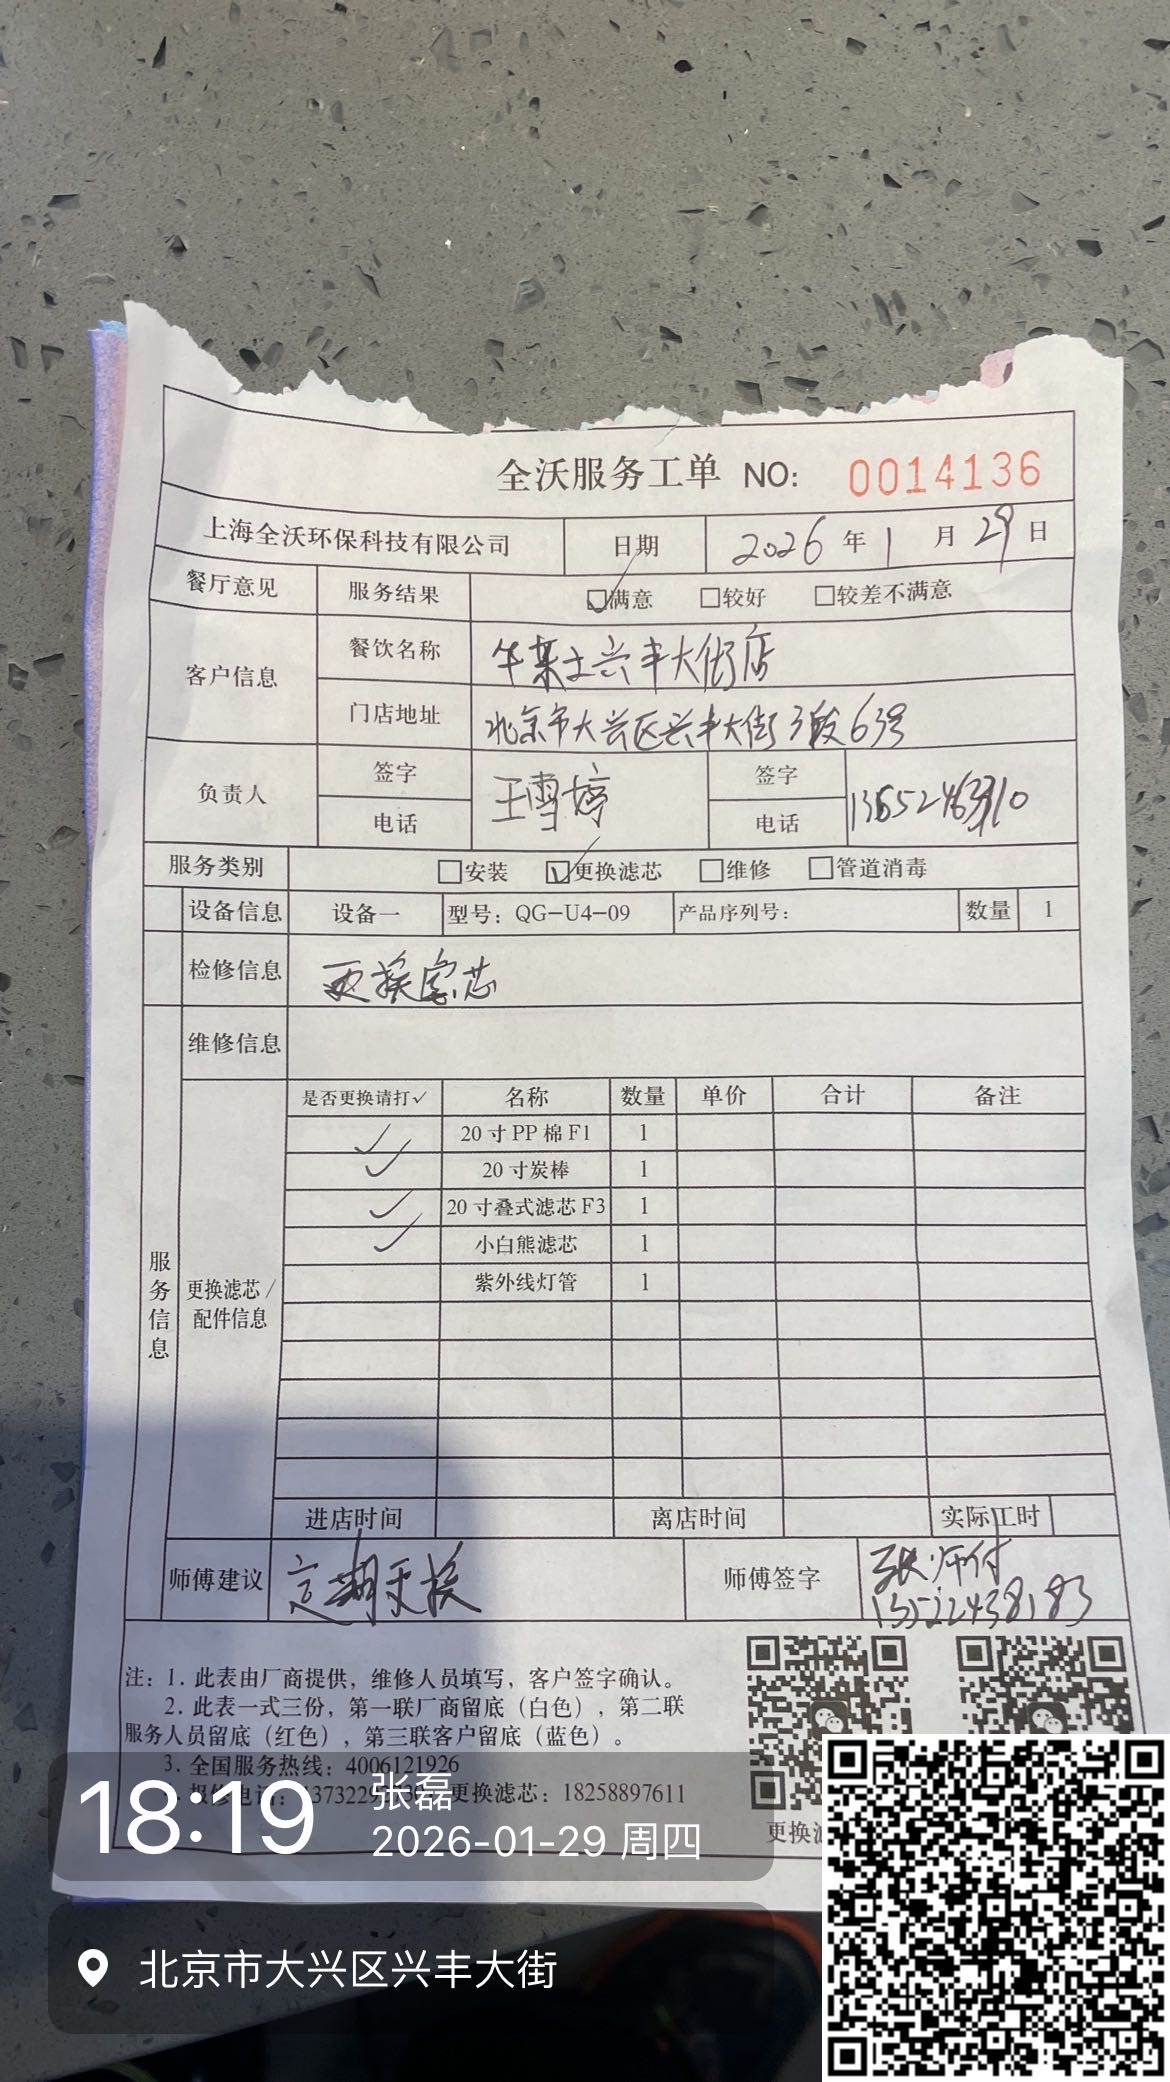 全沃服务工单 NO: 0014136
上海全沃环保科技有限公司 日期 2026 年 1 月 29 日
餐厅意见 服务结果 ☑满意 □较好 □较差不满意
客户信息 餐饮名称 牛某士兴丰大街店
门店地址 北京市大兴区兴丰大街3段63号
负责人 签字 王雪婷 签字
电话 电话
服务类别 □安装 ☑更换滤芯 □维修 □管道消毒
设备信息 设备一 型号: QG-U4-09 产品序列号: 数量 1
检修信息 更换滤芯
维修信息
服务信息
更换滤芯/配件信息
是否更换请打✓ 名称 数量 单价 合计 备注
✓ 20寸PP棉F1 1
✓ 20寸炭棒 1
✓ 20寸叠式滤芯F3 1
✓ 小白熊滤芯 1
紫外线灯管 1
进店时间 离店时间 实际工时
师傅建议 定期更换 师傅签字 张师付
13522438183
注: 1. 此表由厂商提供, 维修人员填写, 客户签字确认。
2. 此表一式三份, 第一联厂商留底（白色）, 第二联
服务人员留底（红色）, 第三联客户留底（蓝色）。
3. 全国服务热线: 4006121926
更换滤芯: 18258897611
更换
18:19
张磊
2026-01-29 周四
北京市大兴区兴丰大街